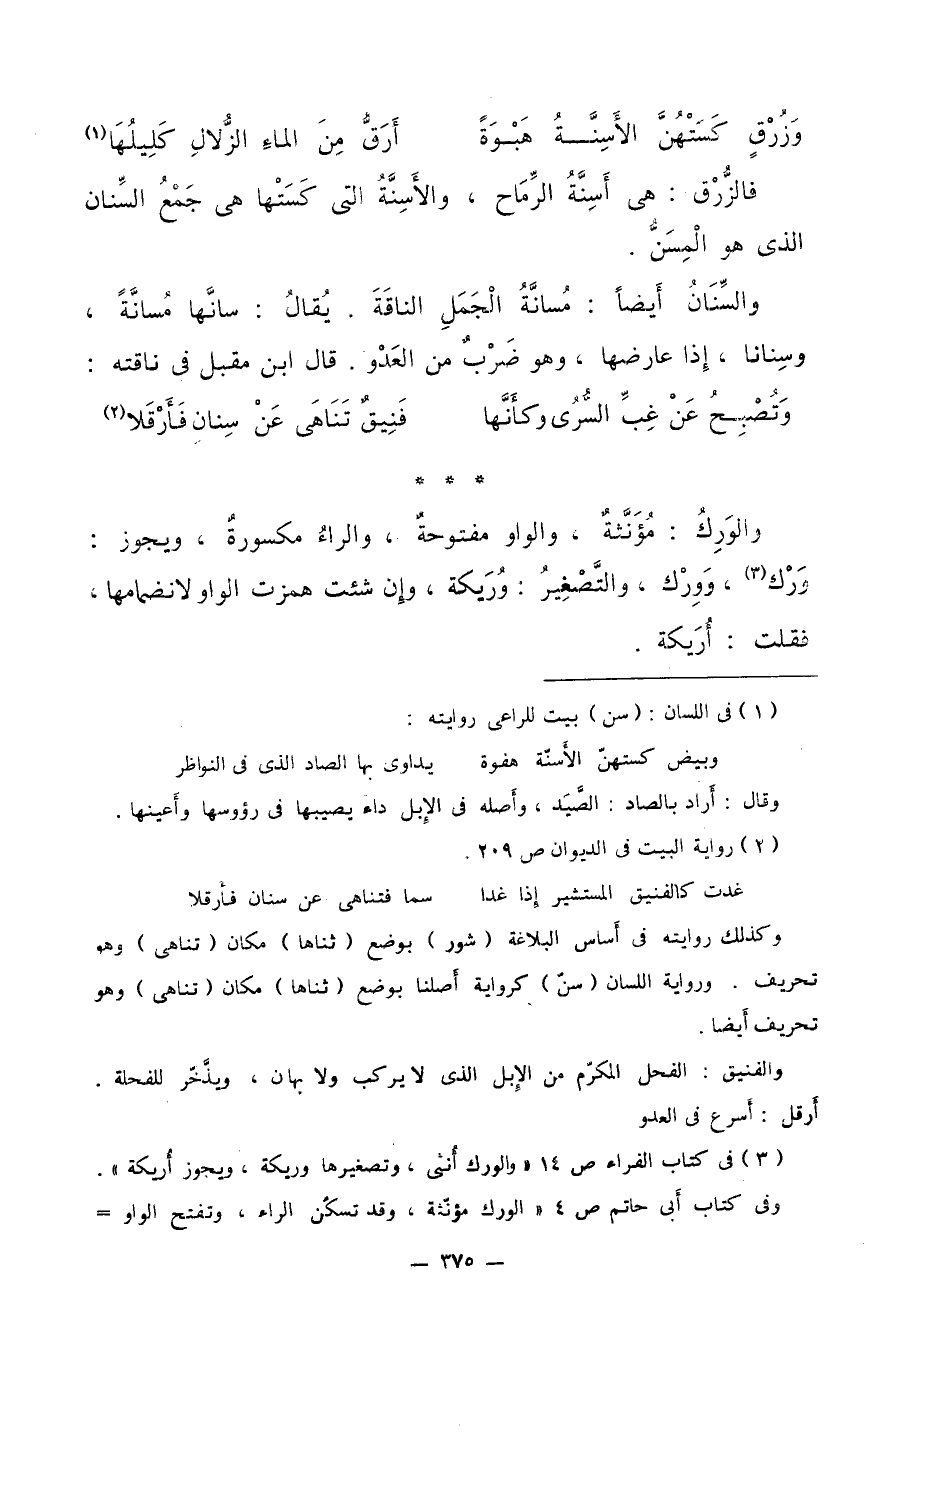 وَزُرْقٍ كَسَتْهُنَّ الأَسِنَّــةُ هَبْوَةً أَرَقُّ مِنَ الماءِ الزُّلالِ كَلِيلُهَا(١)
فالزُّرْق : هى أَسِنَّةُ الرِّمَاح ، والأَسِنَّةُ التى كَسَتْها هى جَمْعُ السِّنان
الذى هو الْمِسَنُّ .
والسِّنَانُ أَيضاً : مُسانَّةُ الْجَمَلِ الناقَةَ . يُقالُ : سانَّها مُسانَّةً ،
وسِنانا ، إذا عارضها ، وهو ضَرْبٌ من العَدْو . قال ابن مقبل فى ناقته :
وَتُصْبِــحُ عَنْ غِبِّ السُّرُى وكأَنَّها فَنِيقٌ تَنَاهَى عَنْ سِنان فَأَرْقَلا(٢)
* * *
والوَرِكُ : مُؤَنَّثةٌ ، والواو مفتوحةٌ ، والراءُ مكسورةٌ ، ويجوز :
وَرْك(٣) ، وَوِرْك ، والتَّصْغِيرُ : وُرَيكة ، وإن شئت همزت الواو لانضمامها ،
فقلت : أُرَيكة .
( ١ ) فى اللسان : ( سن ) بيت للراعى روايته :
وبيض كستهنّ الأَسنّة هفوة يداوى بها الصاد الذى فى النواظر
وقال : أَراد بالصاد : الصَّيَد ، وأَصله فى الإبل داء يصيبها فى رؤوسها وأَعينها .
( ٢ ) رواية البيت فى الديوان ص ٢٠٩ .
غدت كالفنيق المستشير إذا غدا سما فتناهى عن سنان فأرقلا
وكذلك روايته فى أَساس البلاغة ( شور ) بوضع ( ثناها ) مكان ( تناهى ) وهو
تحريف . ورواية اللسان ( سنّ ) كرواية أَصلنا بوضع ( ثناها ) مكان ( تناهى ) وهو
تحريف أَيضا .
والفنيق : الفحل المكرّم من الإبل الذى لا يركب ولا يهان ، ويذَّخر للفحلة .
أَرقل : أَسرع فى العدو
( ٣ ) فى كتاب الفراء ص ١٤ « والورك أُنثى ، وتصغيرها وريكة ، ويجوز أُريكة » .
وفى كتاب أَبى حاتم ص ٤ « الورك مؤنّثة ، وقد تسكّن الراء ، وتفتح الواو =
— ٣٧٥ —